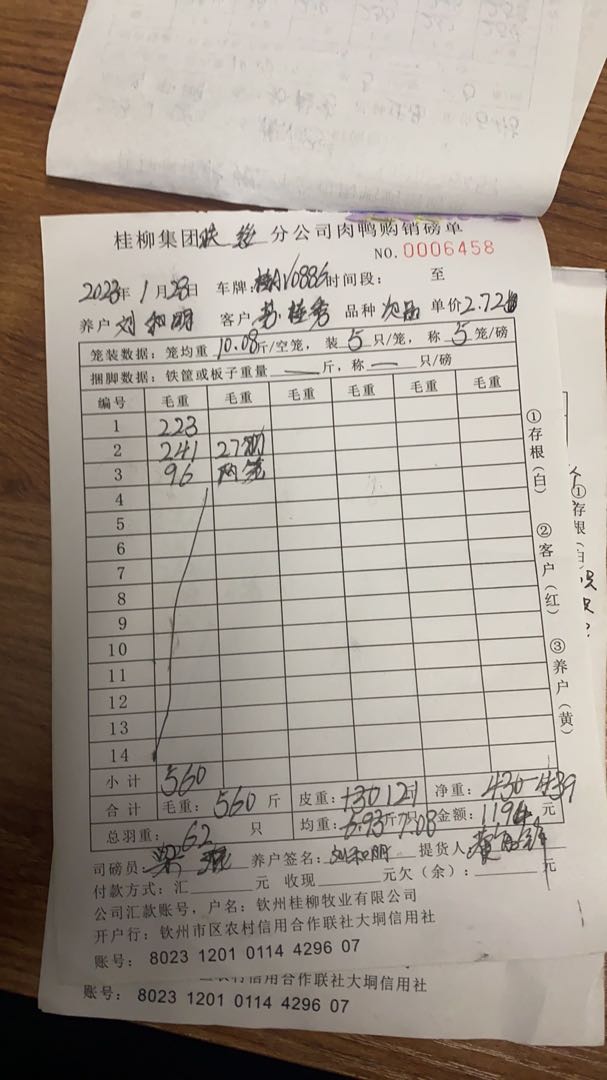 桂柳集团 分公司肉鸭购销磅单
NO. 0006458
2023年 1月28日 车牌: 时间段: 至
养户 刘和明 客户 苏桂秀 品种 次品 单价 2.72
笼装数据: 笼均重 10.08 斤/空笼, 装 5 只/笼, 称 5 笼/磅
捆脚数据: 铁筐或板子重量 — 斤, 称 — 只/磅
编号 毛重 毛重 毛重 毛重 毛重 毛重
1 223
2 241 27
3 96 两笼
4
5
6
7
8
9
10
11
12
13
14
小计 560
合计 毛重: 560 斤 皮重: 130 121 净重: 430 439
总羽重: 62 只 均重: 6.93斤/只 7.08 金额: 1194 元
司磅员: 养户签名: 刘和明 提货人:
付款方式: 汇 元 收现 元欠(余): 元
公司汇款账号, 户名: 钦州桂柳牧业有限公司
开户行: 钦州市区农村信用合作联社大垌信用社
账号: 8023 1201 0114 4296 07
①存根(白) ②客户(红) ③养户(黄)
农村信用合作联社大垌信用社
账号: 8023 1201 0114 4296 07
①存根